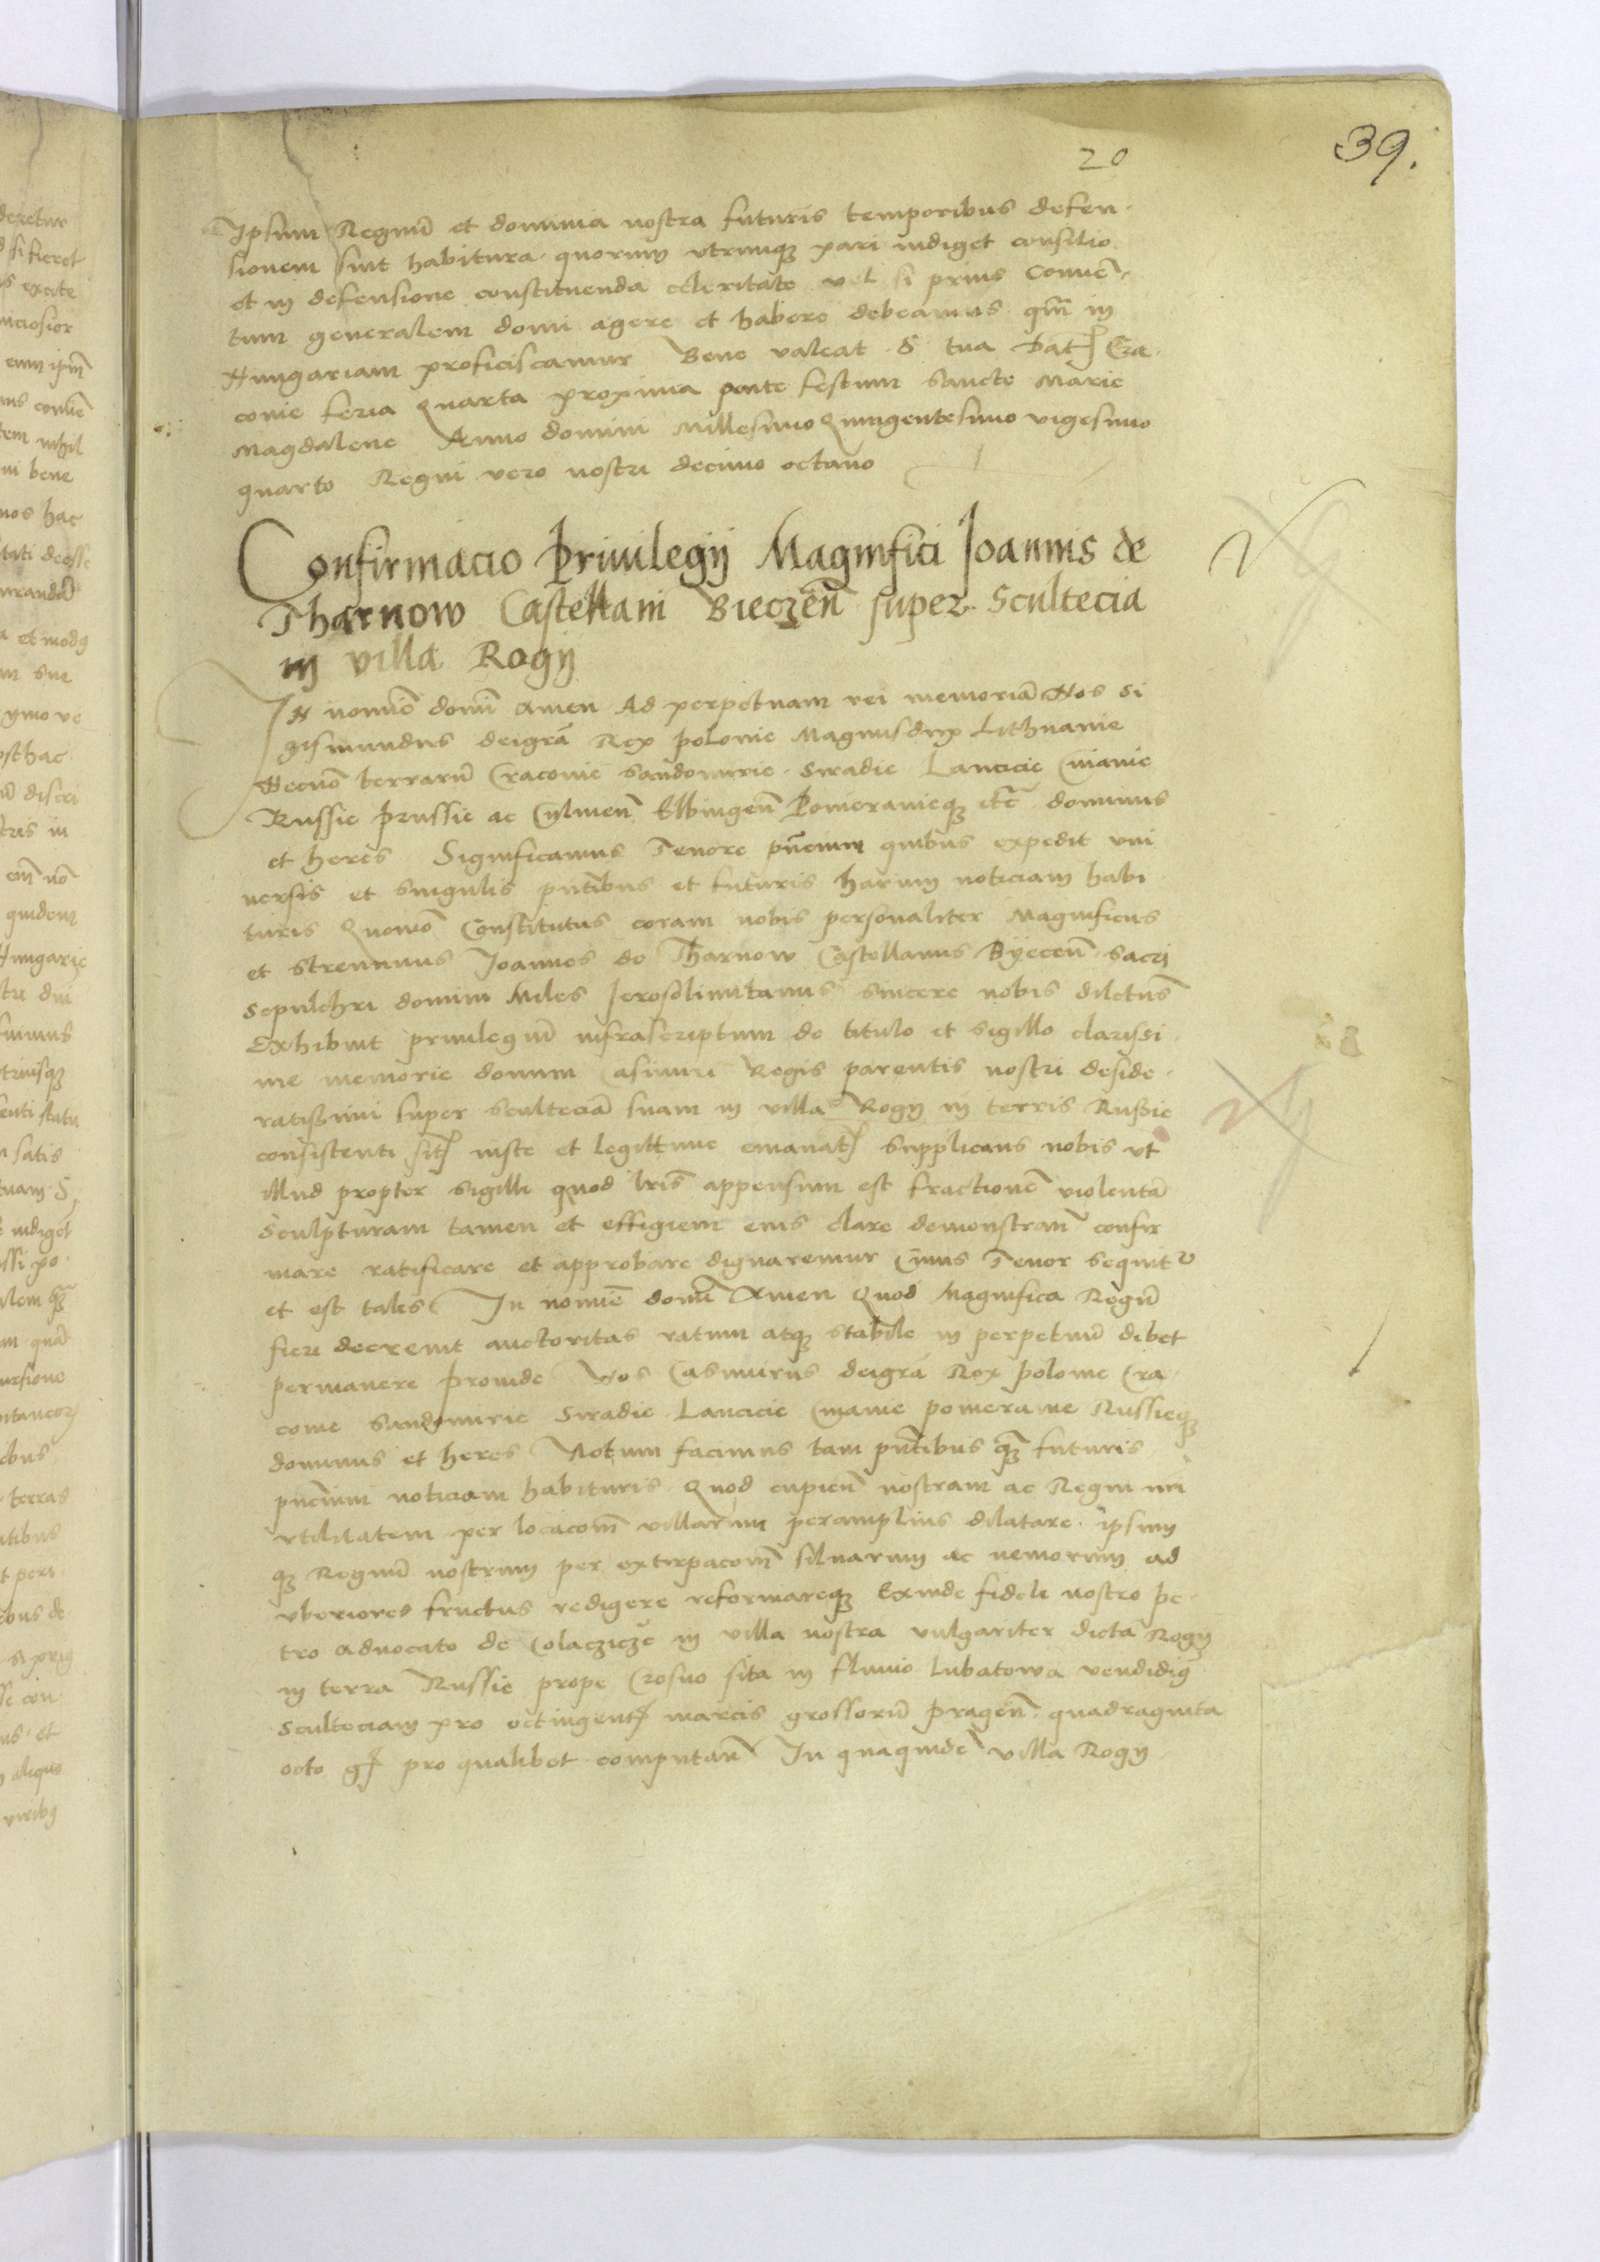 20
39.
Ipsum Regnū et dominia nostra futuris temporibus defen-
sionem sint habitura quorum utrumqꝫ pari indiget consilio
et in defensione constituenda celeritate vel si prius Conuē-
tum generalem domi agere et habere debeamus qm̄ in
Hungariam proficiscamur Bene valeat S tua Dat Cra-
couie feria Quarta proxima ante festum Sancte Marie
Magdalene Anno domini Millesimo Quingentesimo vigesimo
quarto Regni vero nostri decimo octauo
Confirmacio Priuilegij Magnifici Joannis de
Tharnow Castellani Bieczen̄ super Scultecia
in villa Rogij
In nomīe domī Amen Ad perpetuam rei memoriā Nos Si
gismundus deigrā Rex polonie Magnus dux Lithuanie
Necnō terrarū Cracouie Sandomirie Siradie Lancicie Cuiauie
Russie prussie ac Culmen̄ Elbingen̄ Pomeranieqꝫ etc̄ dominus
et heres Significamus Tenore pn̄cium quibus expedit vni
uersis et singulis pn̄tibus et futuris harum noticiam habi
turis Quomō Constitutus coram nobis personaliter Magnificus
et strennuus Joannes de Tharnow Castellanus Byecen̄ Sacri
Sepulchri domini Miles Jerosolimitanus sincere nobis dilctus̄
Exhibuit priuilegiū infrascriptum de titulo et sigillo clarissi
me memorie domini Casimiri Regis parentis nostri deside-
ratissimi super scultecia suam in villa Rogij in terris Russie
consistenti sit iuste et legittime emanat Supplicans nobis vt
illud propter sigilli quod lris̄ appensum est fractionē violentā
Sculpturam tamen et effigiem eius clare demonstran̄ confir
mare ratificare et approbare dignaremur Cuius Tenor sequitᵘ
et est talis In nomīe domī Amen Quod Magnifica Regū
fieri decreuit auctoritas ratum atqꝫ stabile in perpetuū debet
permanere proinde Nos Casimirus deigrā Rex polonie Cra-
couie Sandomirie Siradie Lancicie Cuiauie pomeranie Russieqꝫ
dominus et heres Notum facimus tam pn̄tibus qꝫ̄ futuris
pn̄cium noticiam habituris Quod cupien̄ nostram ac Regni nr̄i
vtilitatem per locacom̄ villarum peramplius dilatare ipsum
qꝫ Regnū nostrum per extirpacom̄ siluarum ac nemorum ad
vberiores fructus redigere reformareqꝫ Exinde fideli nostro pe-
tro aduocato de Colaczicze in villa nostra vulgariter dicta Rogij
in terra Russie prope Crosno sita in fluuio lubatowa vendidiꝫ
Sculteciam pro octingent marcis grossorū pragen̄ quadraginta
octo gr pro qualibet computan̄ In quaquidē villa Rogij